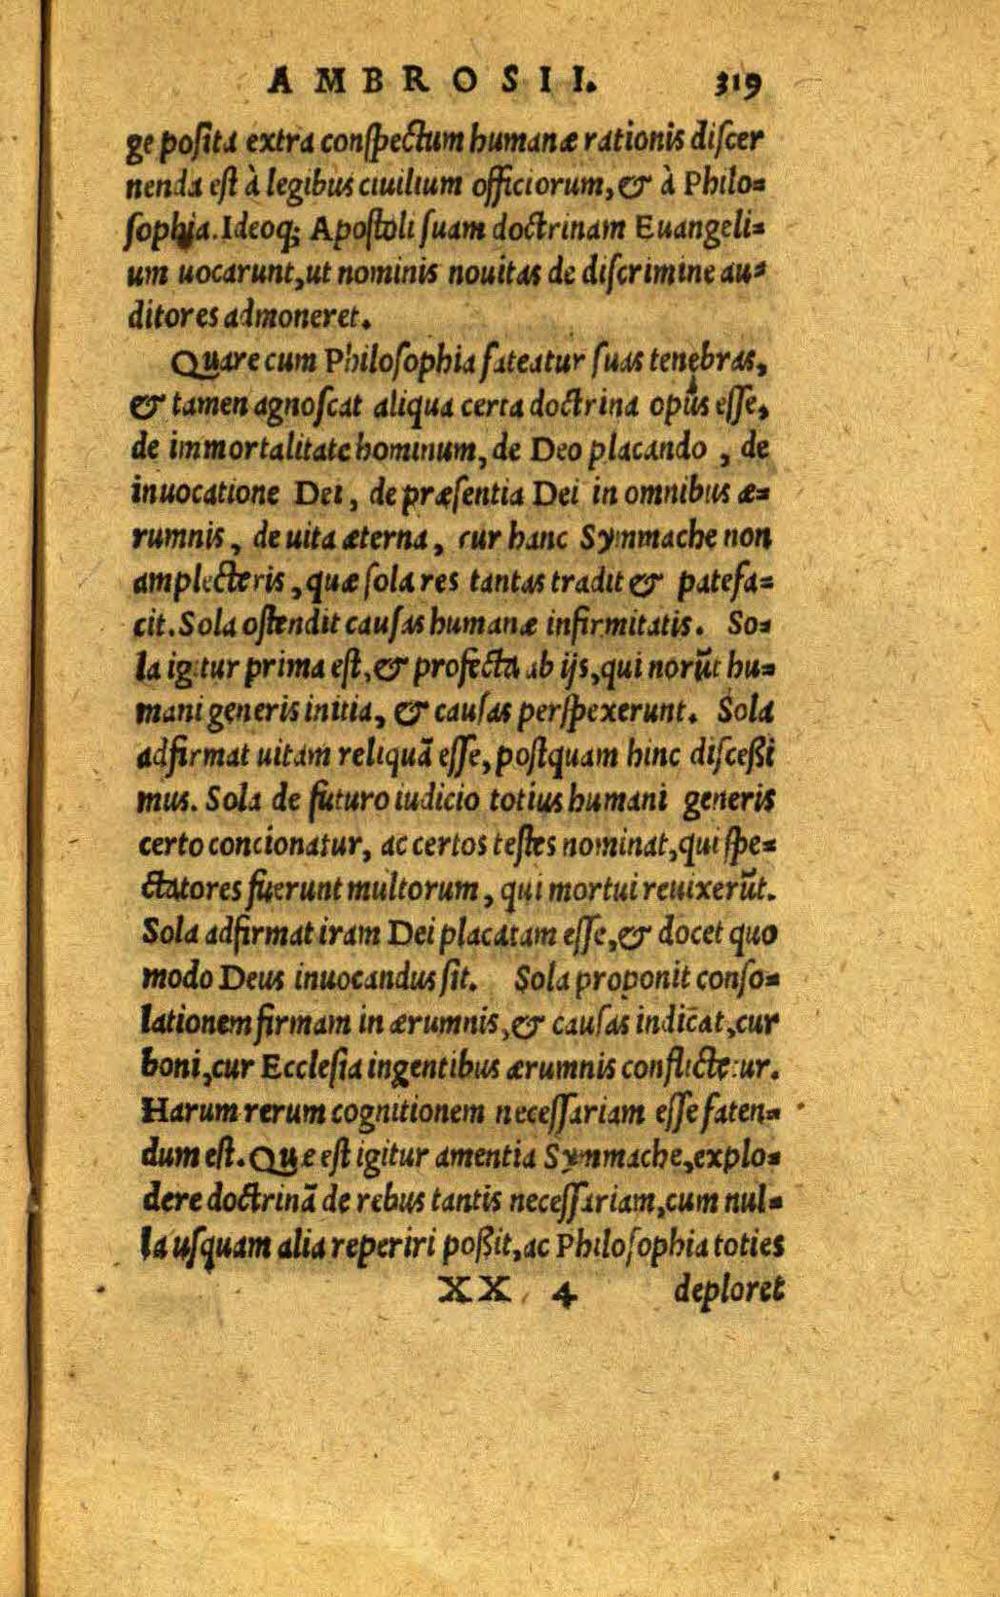 AMBROSII. 319
ge poſita extra conſpectum humanæ rationis diſcer
nenda eſt à legibus ciuilium officiorum, & à Philo=
ſophia. Ideoq; Apoſtoli ſuam doctrinam Euangeli=
um uocarunt, ut nominis nouitas de diſcrimine au=
ditores admoneret.
Quare cum Philoſophia fateatur ſuas tenebras,
& tamen agnoſcat aliqua certa doctrina opus eſſe,
de immortalitate hominum, de Deo placando, de
inuocatione Dei, de præſentia Dei in omnibus æ=
rumnis, de uita æterna, cur hanc Symmache non
amplecteris, quæ ſola res tantas tradit & patefa=
cit. Sola oſtendit cauſas humanæ infirmitatis. So=
la igitur prima eſt, & profecta ab ijs, qui norũt hu=
mani generis initia, & cauſas perſpexerunt. Sola
adfirmat uitam reliquã eſſe, poſtquam hinc diſceßi
mus. Sola de futuro iudicio totius humani generis
certo concionatur, ac certos teſtes nominat, qui ſpe=
ctatores fuerunt multorum, qui mortui reuixerũt.
Sola adfirmat iram Dei placatam eſſe, & docet quo
modo Deus inuocandus ſit. Sola proponit conſo=
lationem firmam in ærumnis, & cauſas indicat, cur
boni, cur Eccleſia ingentibus ærumnis conflictetur.
Harum rerum cognitionem neceſſariam eſſe faten=
dum eſt. Quæ eſt igitur amentia Symmache, explo=
dere doctrinã de rebus tantis neceſſariam, cum nul=
la uſquam alia reperiri poßit, ac Philoſophia toties
XX 4 deploret